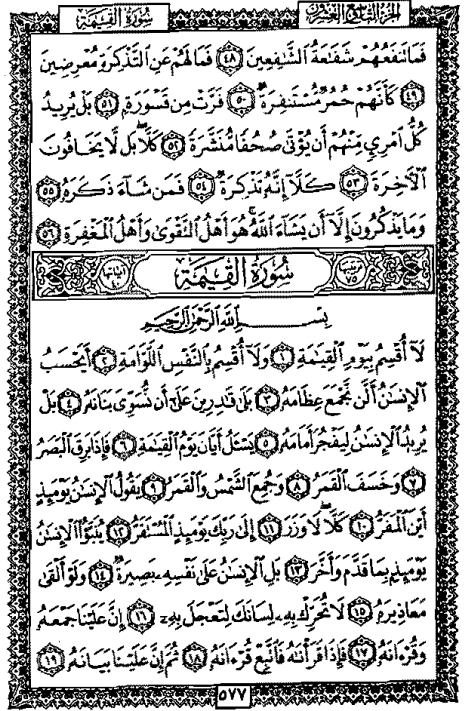 الجزء التاسع والعشرون
سُورَةُ القِيَامَةِ
فَمَا تَنفَعُهُمْ شَفَٰعَةُ الشَّٰفِعِينَ ٤٨ فَمَا لَهُمْ عَنِ التَّذْكِرَةِ مُعْرِضِينَ
٤٩ كَأَنَّهُمْ حُمُرٌ مُّسْتَنفِرَةٌ ٥٠ فَرَّتْ مِن قَسْوَرَةٍ ٥١ بَلْ يُرِيدُ
كُلُّ امْرِئٍ مِّنْهُمْ أَن يُؤْتَىٰ صُحُفًا مُّنَشَّرَةً ٥٢ كَلَّا بَل لَّا يَخَافُونَ
الْآخِرَةَ ٥٣ كَلَّا إِنَّهُ تَذْكِرَةٌ ٥٤ فَمَن شَاءَ ذَكَرَهُ ٥٥
وَمَا يَذْكُرُونَ إِلَّا أَن يَشَاءَ اللَّهُ هُوَ أَهْلُ التَّقْوَىٰ وَأَهْلُ الْمَغْفِرَةِ ٥٦
سُورَةُ القِيَامَةِ
بِسْمِ اللَّهِ الرَّحْمَٰنِ الرَّحِيمِ
لَا أُقْسِمُ بِيَوْمِ الْقِيَٰمَةِ ١ وَلَا أُقْسِمُ بِالنَّفْسِ اللَّوَّامَةِ ٢ أَيَحْسَبُ
الْإِنسَٰنُ أَلَّن نَّجْمَعَ عِظَامَهُ ٣ بَلَىٰ قَٰدِرِينَ عَلَىٰ أَن نُّسَوِّيَ بَنَانَهُ ٤ بَلْ
يُرِيدُ الْإِنسَٰنُ لِيَفْجُرَ أَمَامَهُ ٥ يَسْـَٔلُ أَيَّانَ يَوْمُ الْقِيَٰمَةِ ٦ فَإِذَا بَرِقَ الْبَصَرُ
٧ وَخَسَفَ الْقَمَرُ ٨ وَجُمِعَ الشَّمْسُ وَالْقَمَرُ ٩ يَقُولُ الْإِنسَٰنُ يَوْمَئِذٍ
أَيْنَ الْمَفَرُّ ١٠ كَلَّا لَا وَزَرَ ١١ إِلَىٰ رَبِّكَ يَوْمَئِذٍ الْمُسْتَقَرُّ ١٢ يُنَبَّؤُا الْإِنسَٰنُ
يَوْمَئِذٍ بِمَا قَدَّمَ وَأَخَّرَ ١٣ بَلِ الْإِنسَٰنُ عَلَىٰ نَفْسِهِ بَصِيرَةٌ ١٤ وَلَوْ أَلْقَىٰ
مَعَاذِيرَهُ ١٥ لَا تُحَرِّكْ بِهِ لِسَانَكَ لِتَعْجَلَ بِهِ ١٦ إِنَّ عَلَيْنَا جَمْعَهُ
وَقُرْءَانَهُ ١٧ فَإِذَا قَرَأْنَٰهُ فَاتَّبِعْ قُرْءَانَهُ ١٨ ثُمَّ إِنَّ عَلَيْنَا بَيَانَهُ ١٩
٥٧٧